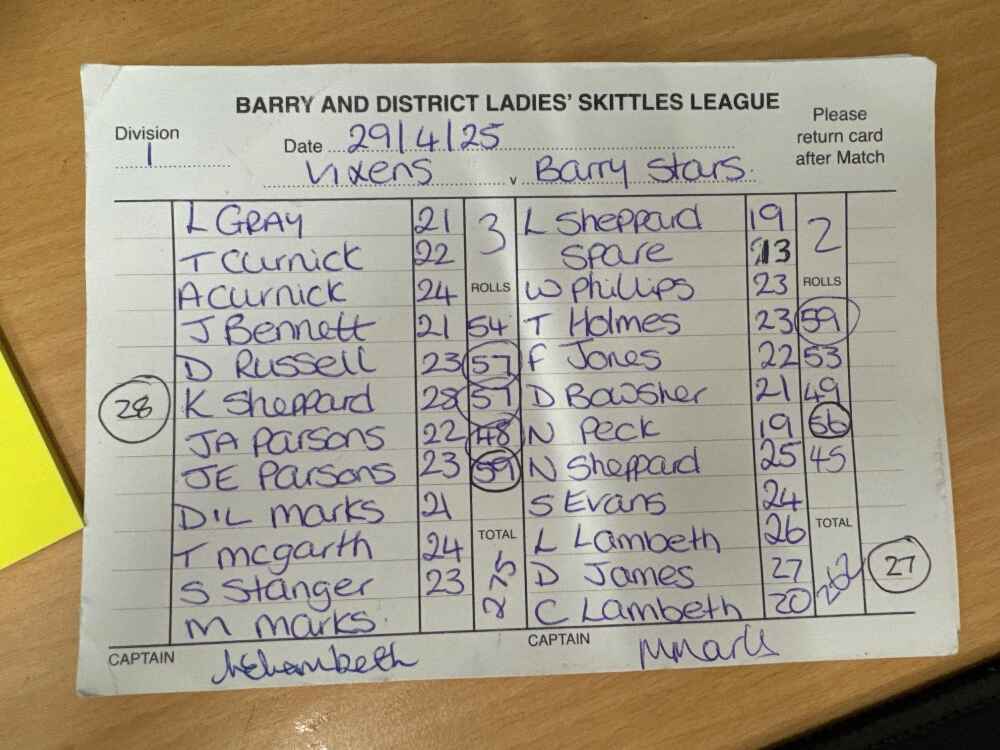 BARRY AND DISTRICT LADIES' SKITTLES LEAGUE
Division 1
Date 29/4/25
Please return card after Match
Vixens v Barry Stars.
L GRAY 21 3 L Sheppard 19 2
T Curnick 22 Spare 13
A Curnick 24 ROLLS W Phillips 23 ROLLS
J Bennett 21 54 T Holmes 23 59
D Russell 23 57 F Jones 22 53
28 K Sheppard 28 57 D Bowsher 21 49
JA Parsons 22 48 N Peck 19 56
JE Parsons 23 59 N Sheppard 25 45
D'L Marks 21 S Evans 24
T mcgarth 24 TOTAL L Lambeth 26 TOTAL
S Stanger 23 275 D James 27 262 27
M Marks. C Lambeth 20
CAPTAIN CAPTAIN MMarks